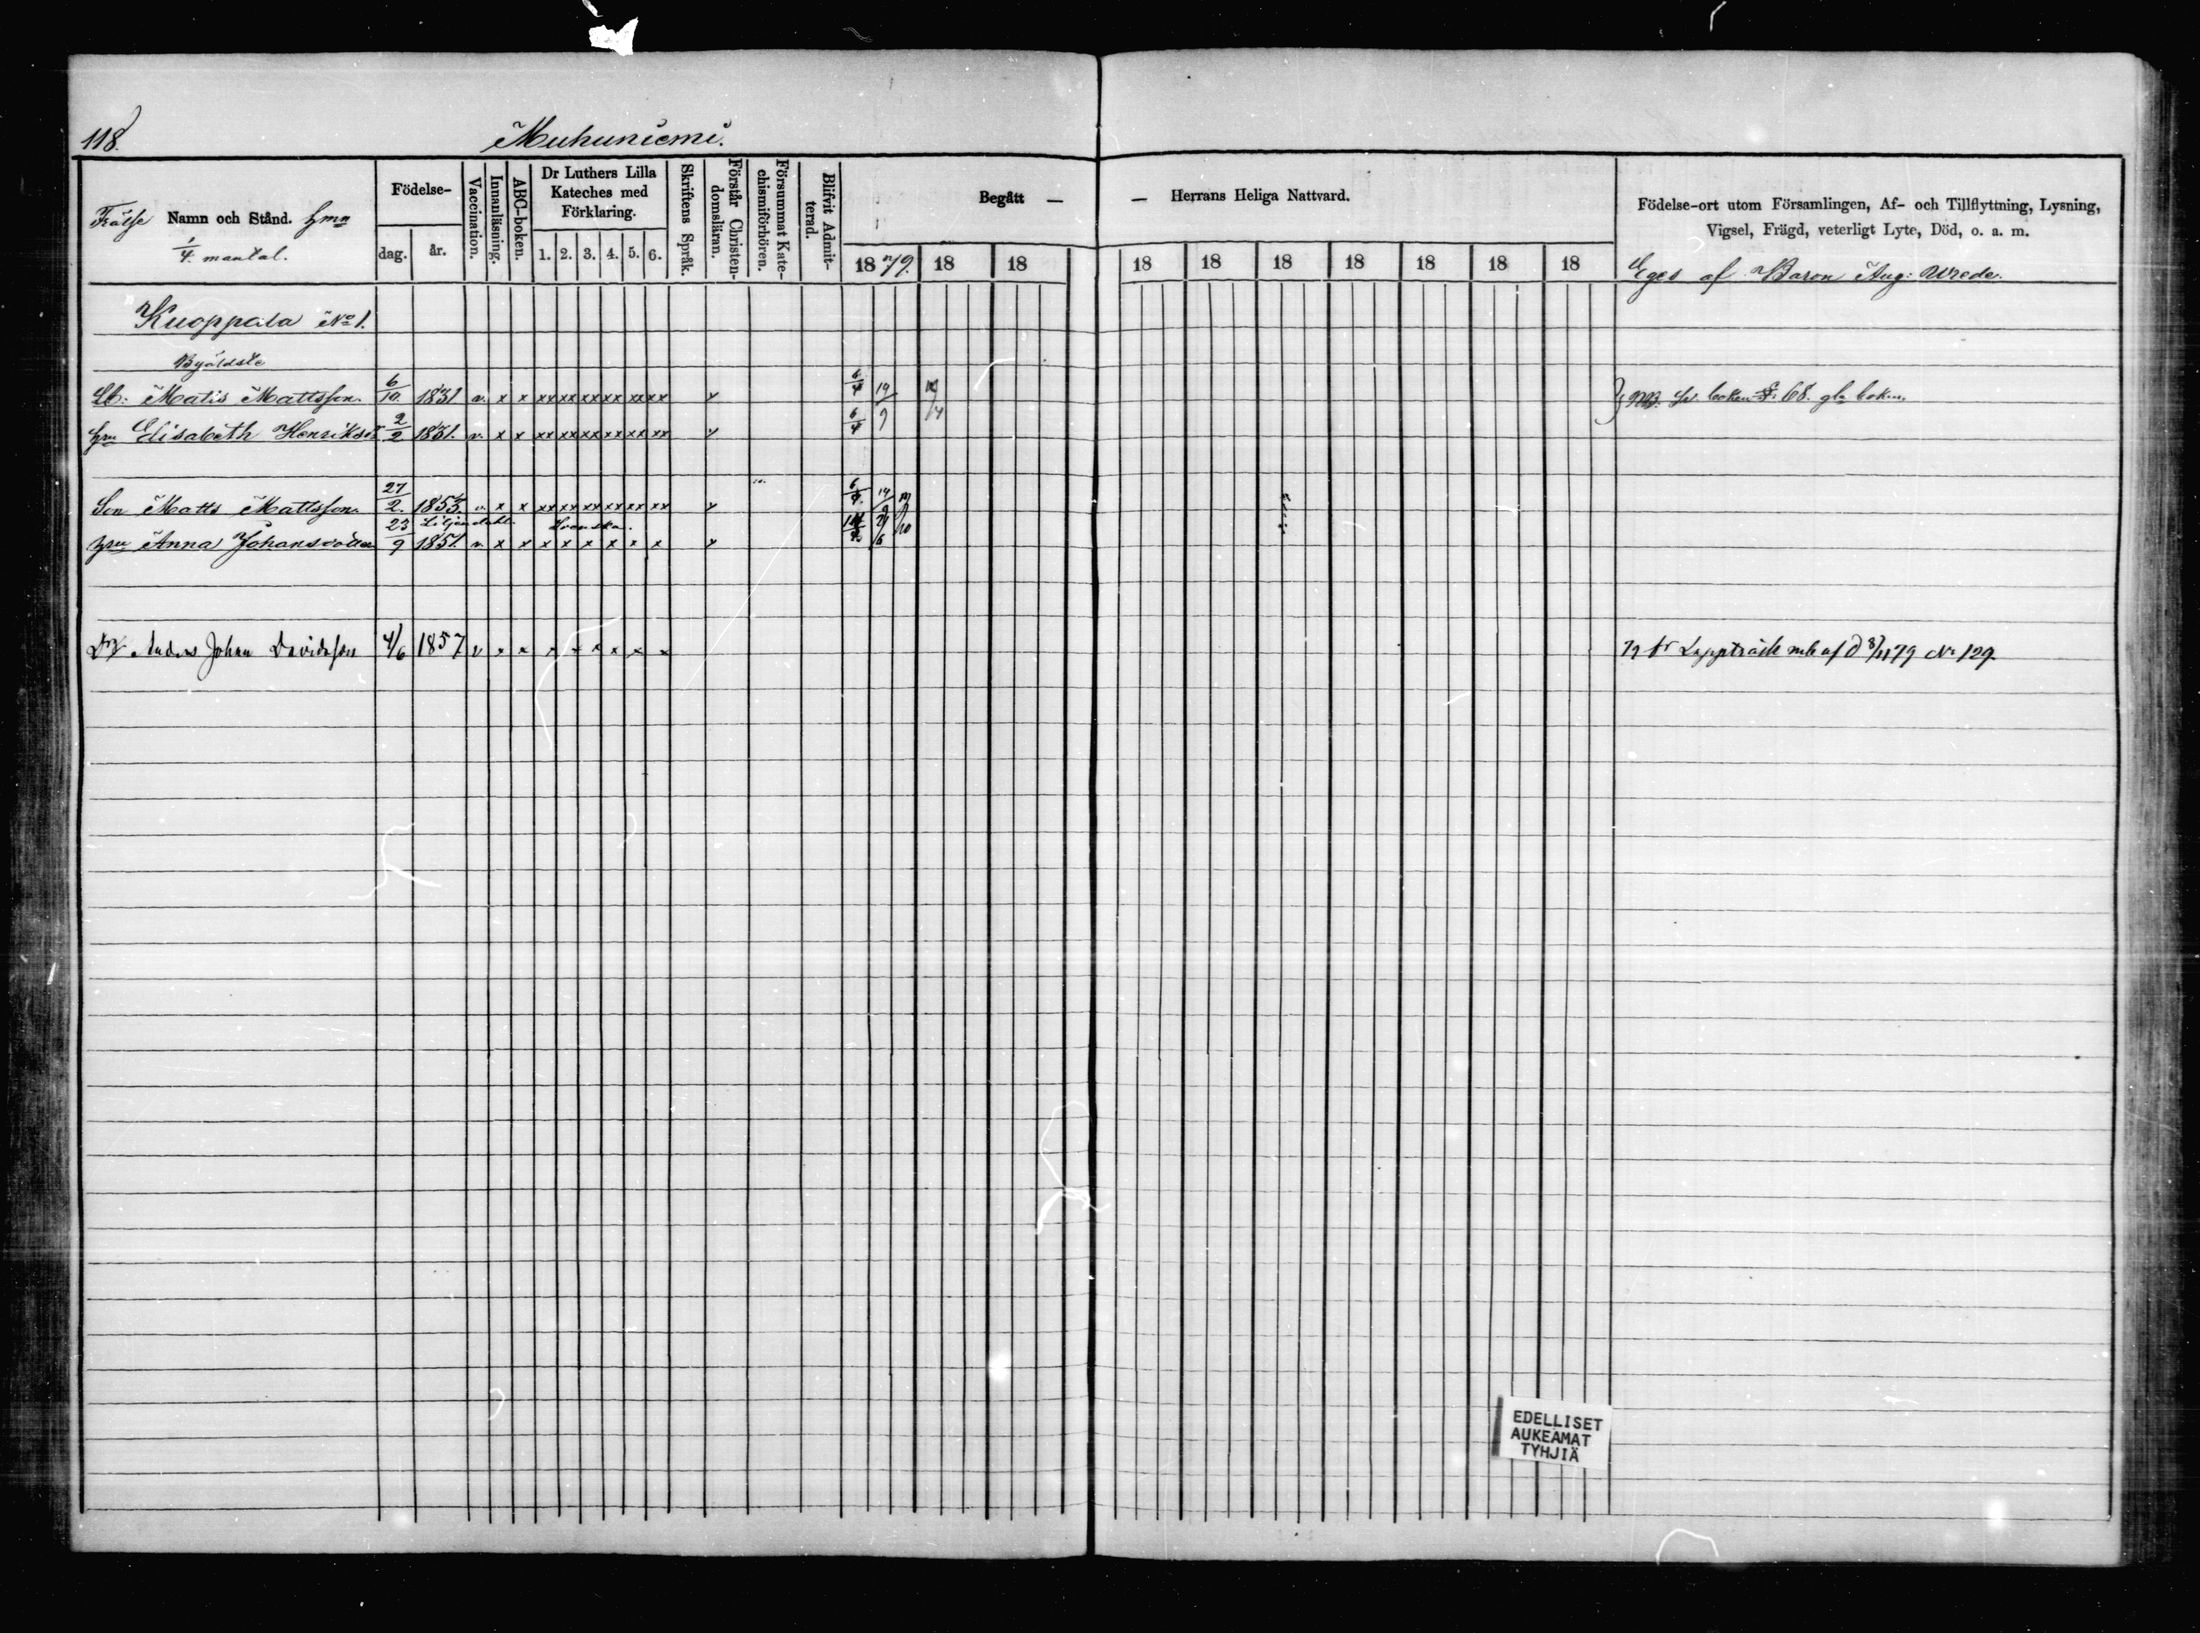 118.
Muhuniemi.
Frälse Namn och Stånd. hmn
1/4 mantal.
Födelse-
dag. år.
Vaccination.
Innanläsning.
ABC-boken.
Dr Luthers Lilla
Kateches med
Förklaring.
1. 2. 3. 4. 5. 6.
Skriftens Språk.
Förstår Christen-
domsläran.
Försummat Kate-
chismiförhören.
Blifvit Admit-
terad.
Begått —
18 79. 18 18
— Herrans Heliga Nattvard.
18 18 18 18 18 18 18
Födelse-ort utom Församlingen, Af- och Tillflyttning, Lysning,
Vigsel, Frägd, veterligt Lyte, Död, o. a. m.
Eges af Baron Aug: Wrede.
Kuoppala No 1.
Byäldste
Lb: Matts Mattsson 6/10 1831 v. x x xx xx xx xx xx xx 6/4 19/9
NB. boken 68. boken
hru Elisabeth Henriksdr 2/2 1831. v. x x xx xx xx xx xx xx 6/4
Son Matts Mattsson 27/2 1853. v. x x xx xx xx xx xx xx
Liljendahl. Svenska.
hru Anna Johansdotter 23/9 1851. v x x x x x x x x
Dr Anders Johan Davidsson 4/6 1857 v x x x x x x x x Lappträsk mb af d 8/11 79 No 129.
EDELLISET
AUKEAMAT
TYHJIÄ